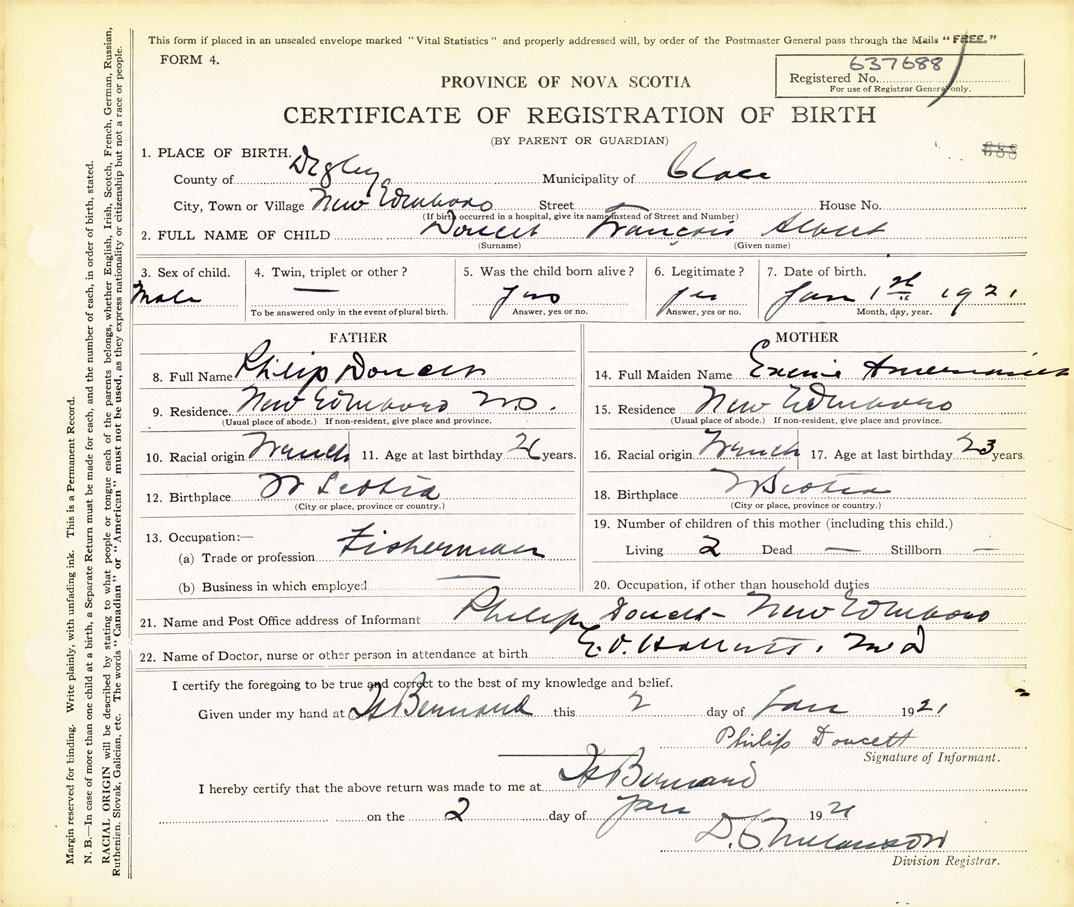 This form if placed in an unsealed envelope marked "Vital Statistics" and properly addressed will, by order of the Postmaster General pass through the Mails "FREE."
FORM 4.
637688
Registered No.
For use of Registrar General only.
PROVINCE OF NOVA SCOTIA
CERTIFICATE OF REGISTRATION OF BIRTH
(BY PARENT OR GUARDIAN)
1. PLACE OF BIRTH.
County of Digby Municipality of Clare
City, Town or Village New Edinboro Street House No.
(If birth occurred in a hospital, give its name instead of Street and Number)
2. FULL NAME OF CHILD Doucet François Albert
(Surname) (Given name)
3. Sex of child. 4. Twin, triplet or other? 5. Was the child born alive? 6. Legitimate? 7. Date of birth.
Male — yes yes Jan 1st 1921
To be answered only in the event of plural birth. Answer, yes or no. Answer, yes or no. Month, day, year.
FATHER
8. Full Name Philip Doucett
9. Residence New Edinboro N.S.
(Usual place of abode.) If non-resident, give place and province.
10. Racial origin French 11. Age at last birthday years.
12. Birthplace N Scotia
(City or place, province or country.)
13. Occupation:—
(a) Trade or profession Fisherman
(b) Business in which employed —
MOTHER
14. Full Maiden Name
15. Residence New Edinboro
(Usual place of abode.) If non-resident, give place and province.
16. Racial origin French 17. Age at last birthday 23 years.
18. Birthplace N Scotia
(City or place, province or country.)
19. Number of children of this mother (including this child.)
Living 2 Dead — Stillborn —
20. Occupation, if other than household duties
21. Name and Post Office address of Informant Philip Doucett New Edinboro
22. Name of Doctor, nurse or other person in attendance at birth M D
I certify the foregoing to be true and correct to the best of my knowledge and belief.
Given under my hand at St Bernard this 2 day of Jan 1921
Philip Doucett
Signature of Informant.
I hereby certify that the above return was made to me at St Bernard
on the 2 day of Jan 1921
D. S. Melanson
Division Registrar.
Margin reserved for binding. Write plainly, with unfading ink. This is a Permanent Record.
N. B.—In case of more than one child at a birth, a Separate Return must be made for each, and the number of each, in order of birth, stated.
RACIAL ORIGIN will be described by stating to what people or tongue each of the parents belongs, whether English, Irish, Scotch, French, German, Russian,
Ruthenian, Slovak, Galician, etc. The words "Canadian" or "American" must not be used, as they express nationality or citizenship but not a race or people.